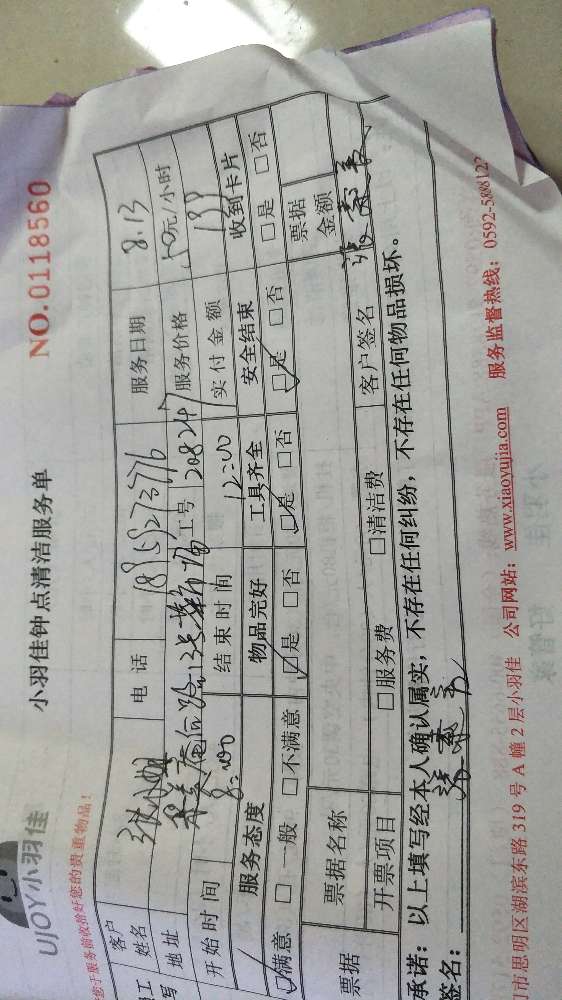 UJOY小羽佳
小羽佳钟点清洁服务单
NO.0118560
您于服务前收拾好您的贵重物品!
客户姓名 张小姐 电话 服务日期 8.13
地址 工号 208247 服务价格 50元/小时
开始时间 8:00 结束时间 12:00 实付金额
服务态度 物品完好 工具齐全 安全结束 收到卡片
☑满意 □一般 □不满意 ☑是 □否 ☑是 □否 ☑是 □否 □是 □否
票据 票据名称 票据金额
开票项目 □服务费 □清洁费 客户签名
承诺:以上填写经本人确认属实,不存在任何纠纷,不存在任何物品损坏。
签名:
门市思明区湖滨东路 319 号 A 幢 2 层小羽佳 公司网站:www.xiaoyujia.com 服务监督热线:0592-5888122